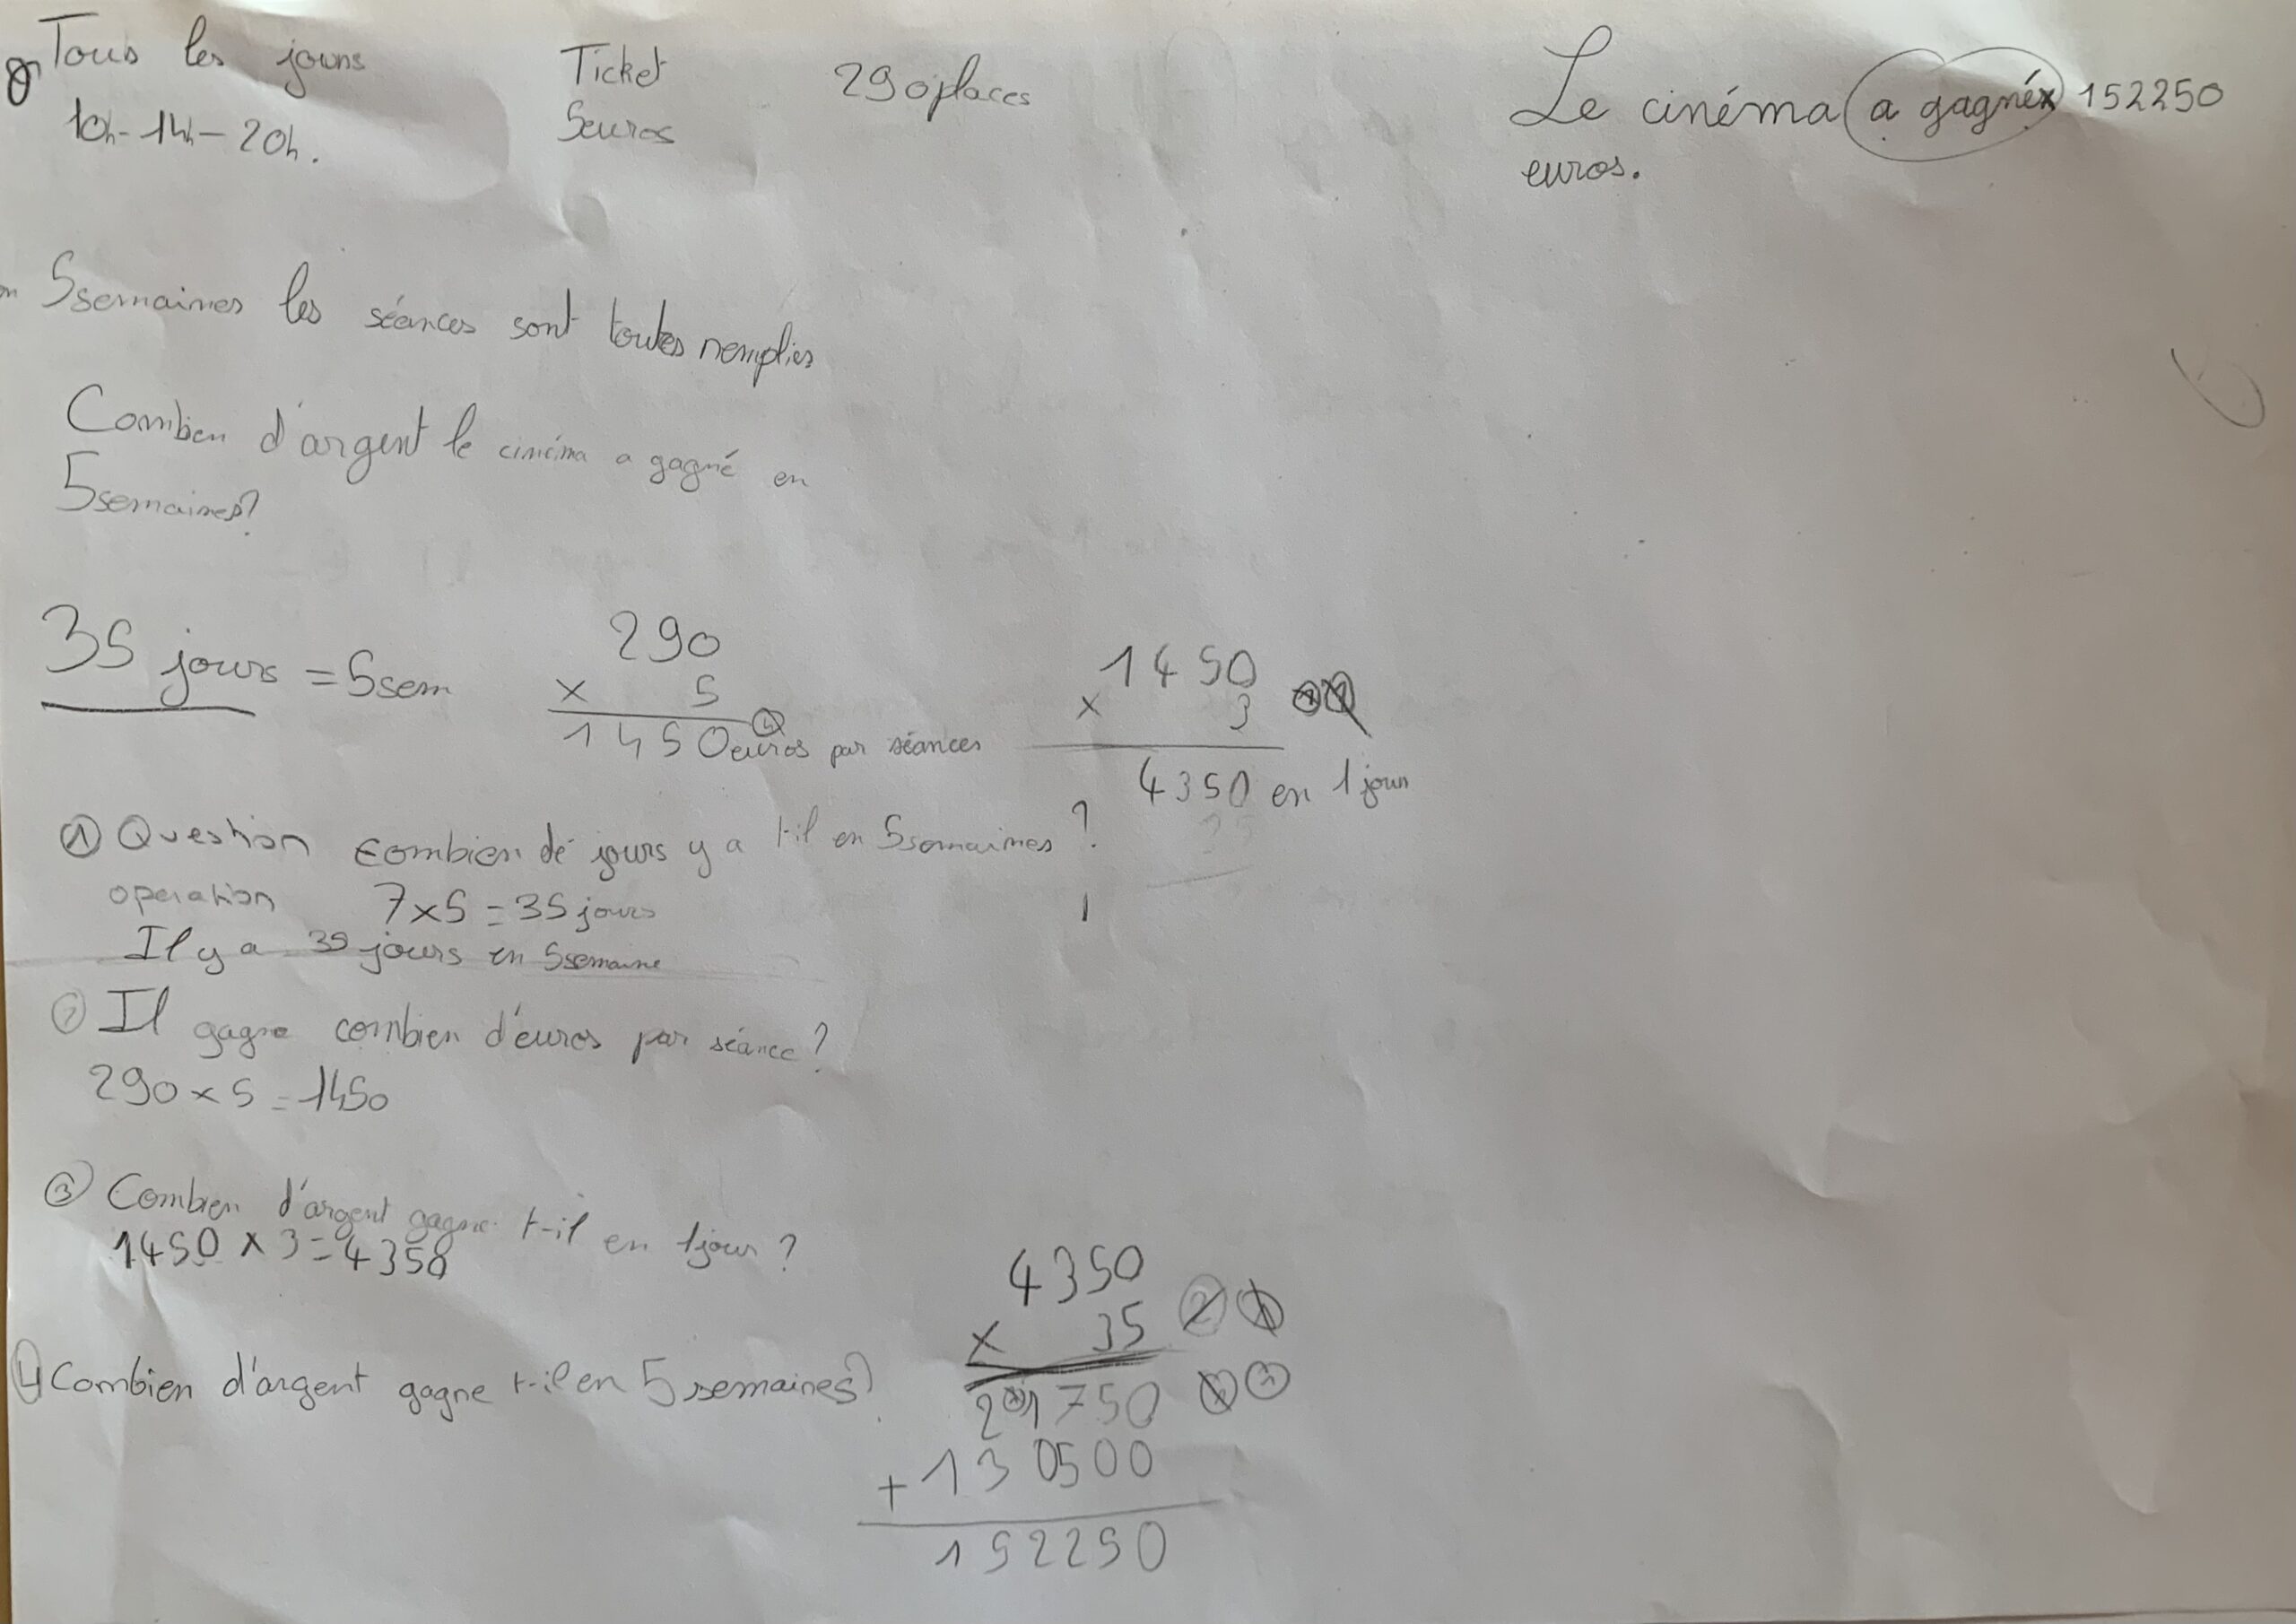 Tous les jours
10h-14h-20h.
Ticket
5euros
290places
Le cinéma a gagné 152250
euros.
5semaines les séances sont toutes remplies
Combien d'argent le cinéma a gagné en
5semaines?
35 jours = 5sem
290
x 5
1450euros par séances
1450
x 3
4350 en 1 jour
① Question combien de jours y a t-il en 5semaines?
operation 7x5=35jours
Il y a 35 jours en 5semaine
② Il gagne combien d'euros par séance?
290x5=1450
③ Combien d'argent gagne t-il en 1jour?
1450 x 3=4350
4 Combien d'argent gagne t-il en 5 semaines?
4350
x 35
21750
+130500
152250